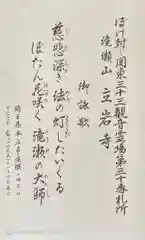 ぼけ封じ関東三十三観音霊場第三十番札所
滝瀬山 立岩寺
御詠歌
慈悲深き法の灯したいくる
ぼたん花咲く滝瀬の大師
埼玉県本庄市